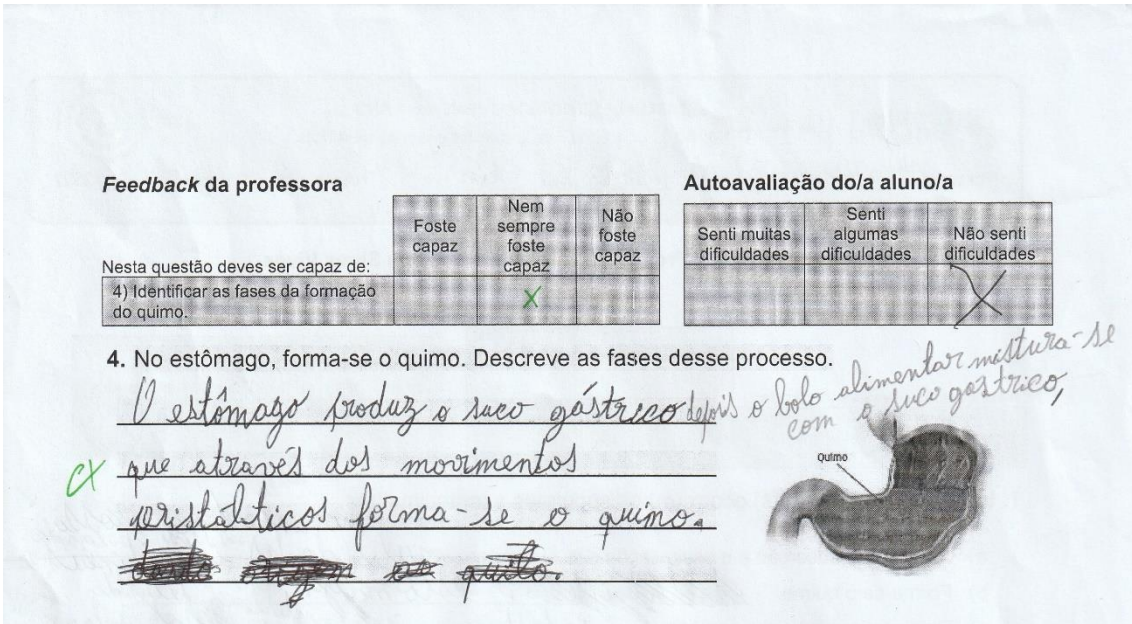 Feedback da professora
Autoavaliação do/a aluno/a
Nesta questão deves ser capaz de:
Foste capaz
Nem sempre foste capaz
Não foste capaz
4) Identificar as fases da formação
do quimo.
X
Senti muitas dificuldades
Senti algumas dificuldades
Não senti dificuldades
X
4. No estômago, forma-se o quimo. Descreve as fases desse processo.
O estômago produz o suco gástrico depois o bolo alimentar mistura-se
com o suco gastrico,
que através dos movimentos
peristálticos forma-se o quimo.
Quimo